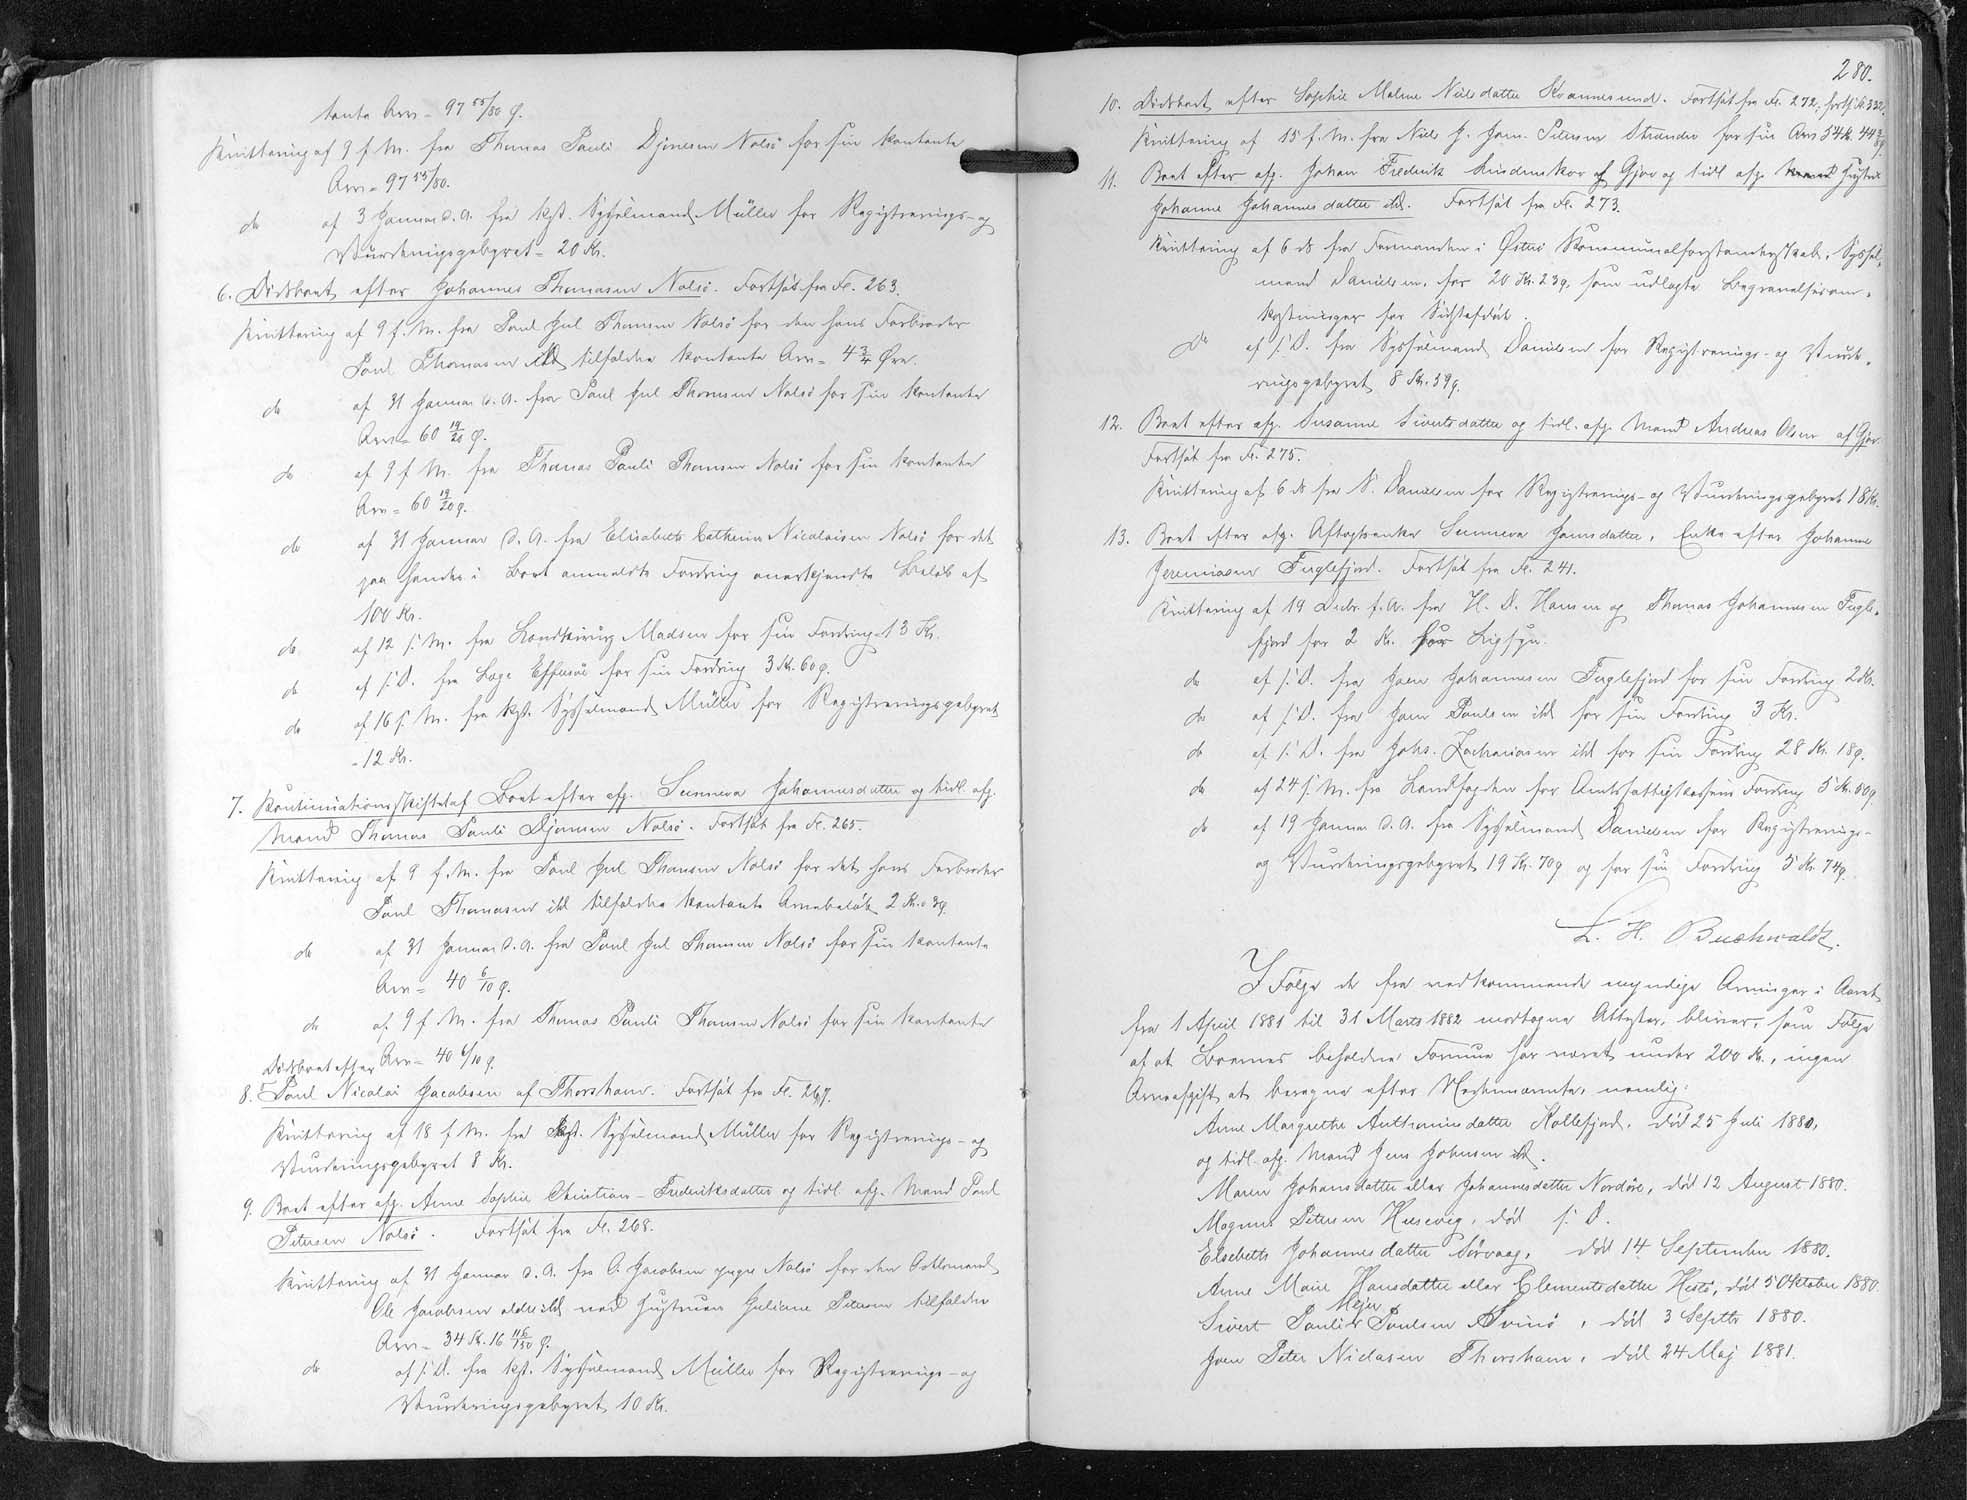 tante Arv = 97 55/80 Ø.
Kvittering af 9 f. M. fra Thomas Pauli Djonesen Nolsö for sin kontante
Arv = 97 55/80.
do af 3 Januar d. A. fra kst. Sysselmand Müller for Registrerings- og
Vurderingsgebyret = 20 Kr.
6. Dødsboet efter Johannes Thomasen Nolsö. Fortsat fra Fl. 263.
Kvittering af 9 f. M. fra Poul Juul Thomsen Nolsö for den hans Farbroder
Poul Thomasen ibd tilfaldne kontante Arv = 4 3/4 Øre.
do af 31 Januar d. A. fra Poul Juul Thomsen Nolsö for sin kontante
Arv = 60 19/20 Ø.
do af 9 f. M. fra Thomas Pauli Thomsen Nolsö for sin kontante
Arv = 60 19/20 Ø.
do af 31 Januar d. A. fra Elisabeth Cathrine Nicolaisen Nolsö for det
paa hendes i Boet anmeldte Fordring anerkjendte Beløb af
100 Kr.
do af 12 s. M. fra Landkirurg Madsen for sin Fordring 13 Kr.
do af s. D. fra Læge Effersöe for sin Fordring 3 Kr. 60 Ø.
do af 16 s. M. fra kst. Sysselmand Müller for Registreringsgebyret
= 12 Kr.
7. Kontinuationsskiftet af Boet efter afg. Sunneva Johannesdatter og tidl. afg.
Mand Thomas Pauli Djonesen Nolsö. Fortsat fra Fl. 265.
Kvittering af 9 f. M. fra Poul Juul Thomsen Nolsö for det hans Farbroder
Poul Thomasen ibd tilfaldne kontante Arvebeløb 2 Kr. 3 Ø.
do af 31 Januar d. A. fra Poul Juul Thomsen Nolsö for sin kontante
Arv = 40 6/10 Ø.
do af 9 f. M. fra Thomas Pauli Thomsen Nolsö for sin kontante
Arv = 40 6/10 Ø.
Dødsboet efter
8. Poul Nicolai Jacobsen af Thorshavn. Fortsat fra Fl. 267.
Kvittering af 18 f. M. fra kst. Sysselmand Müller for Registrerings- og
Vurderingsgebyret 8 Kr.
9. Boet efter afg. Anne Sophie Christian-Frederiksdatter og tidl. afg. Mand Poul
Petersen Nolsö. Fortsat fra Fl. 268.
Kvittering af 31 Januar d. A. fra O. Jacobsen yngre Nolsö for den Ombudsmand
Ole Jacobsen ældre ibd ved Hustruen Juliane Petersen tilfaldne
Arv = 34 Kr. 16 116/150 Ø.
do af s. D. fra kst. Sysselmand Müller for Registrerings- og
Vurderingsgebyret 10 Kr.
280.
10. Dødsboet efter Sophie Malene Nielsdatter Kvannesund. Fortsat fra Fl. 272, forts. Fl. 332.
Kvittering af 15 f. M. fra Niels J. Joen. Petersen Strender for sin Arv 54 Kr. 44 3/8 Ø.
11. Boet efter afg. Johan Frederik Kindenskor af Gjov og tidl. afg. Hustru
Johanne Johannesdatter ibd. Fortsat fra Fl. 273.
Kvittering af 6 ds fra Formanden i Østerö Kommunalforstanderskab, Syssel-
mand Danielsen, for 20 Kr. 23 Ø, som udlagte Begravelsesom-
kostninger for
do af s. D. fra Sysselmand Danielsen for Registrerings- og Vurde-
ringsgebyret 8 Kr. 39 Ø.
12. Boet efter afg. Susanne Sivertsdatter og tidl. afg. Mand Andreas Olsen af Gjov.
Fortsat fra Fl. 275.
Kvittering af 6 ds fra S. Danielsen for Registrerings- og Vurderingsgebyret 18 Kr.
13. Boet efter afg. Aftægtsenke Sunneva Hansdatter, Enke efter Johannes
Jeremiasen Fuglefjord. Fortsat fra Fl. 241.
Kvittering af 19 Decbr. f. A. fra H. D. Hansen og Thomas Johannesen Fugle-
fjord for 2 Kr. for Ligsyn.
do af s. D. fra Joen Johannesen Fuglefjord for sin Fordring 2 Kr.
do af s. D. fra Joen Poulsen ibd for sin Fordring 3 Kr.
do af s. D. fra Johs. Zachariasen ibd for sin Fordring 28 Kr. 18 Ø.
do af 24 s. M. fra Landfogden for Amtsfattigkassens Fordring 5 Kr. 50 Ø
do af 19 Januar d. A. fra Sysselmand Danielsen for Registrerings-
og Vurderingsgebyret 19 Kr. 70 Ø og for sin Fordring 5 Kr. 74 Ø.
L. H. Buchwaldt.
I Følge de fra vedkommende myndige Arvinger i Aaret
fra 1 April 1881 til 31 Marts 1882 modtagne Attester, bliver, som Følge
af at Boernes beholdne Formue har været under 200 Kr., ingen
Arveafgift at beregne efter Nedennævnte, nemlig:
Anne Margrethe Anthoniusdatter Kollefjord, død 25 Juli 1880,
og tidl. afg. Mand Jens Johnsen ibd.
Maren Johansdatter eller Johannesdatter Nordöre, død 12 August 1880.
Magnus Petersen Husevig, død s. D.
Elsebeth Johannesdatter Sörvaag, død 14 September 1880.
Anne Marie Hansdatter eller Clementsdatter Hestö, død 5 Oktober 1880.
Mejer
Sivert Pauli Poulsen Svinö, død 3 Septbr 1880.
Joen Peter Niclasen Thorshavn, død 24 Maj 1881.